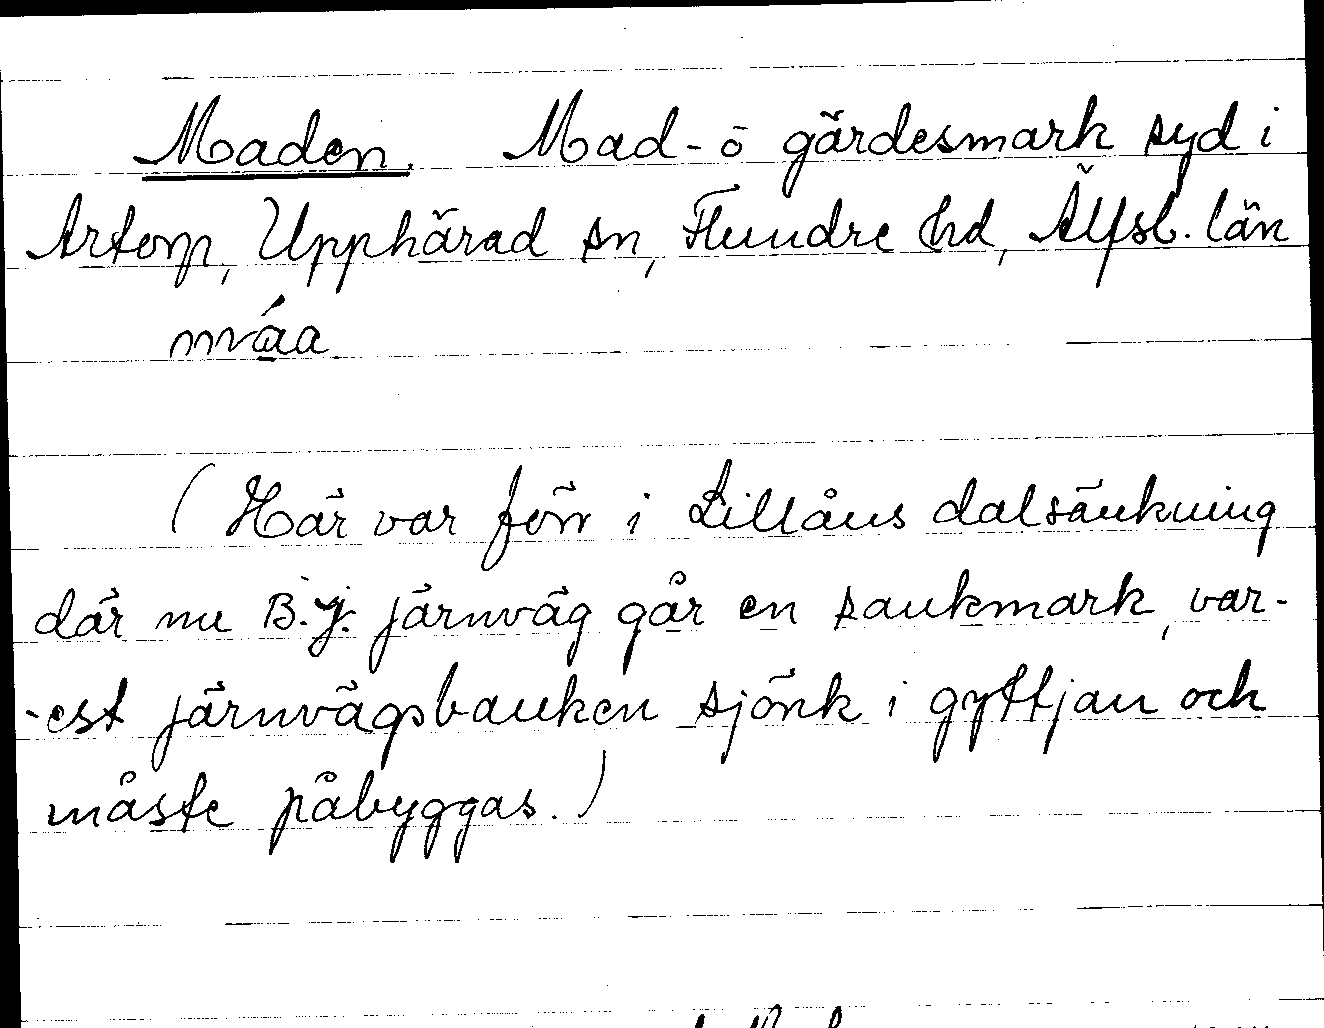 Maden. Mad- o gärdesmark syd i
Artorp, Upphärad sn, Flundre hd, Älfsb. län
mráa
(Här var förr i Lillåns dalsänkning
där nu B.J. järnväg går en sankmark, var-
-est järnvägsbanken sjönk i gyttjan och
måste påbyggas.)